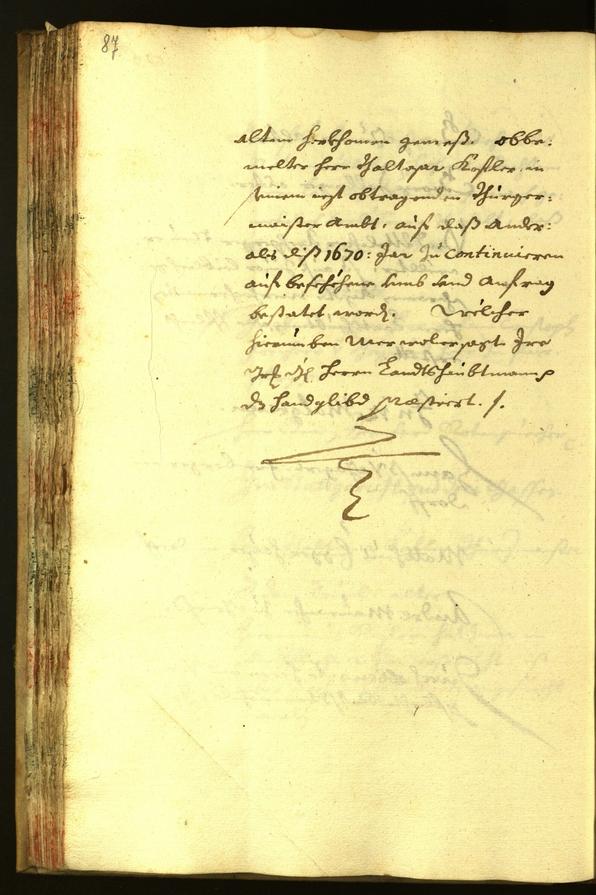 87
altem herkhomen gemeß. obbe:
melter herr Balthasar Kofler, in
seinem iezt obtragenden Burger:
maister Ambt, auf daß Ander:
als diß 1670: Jar zu continuieren
auf beschehene umb und Anfrag
bestätet worden. Welcher
hierüber wolersagt Ire
Herrn Landtshaubtmann
die handglibd præstiert. /.